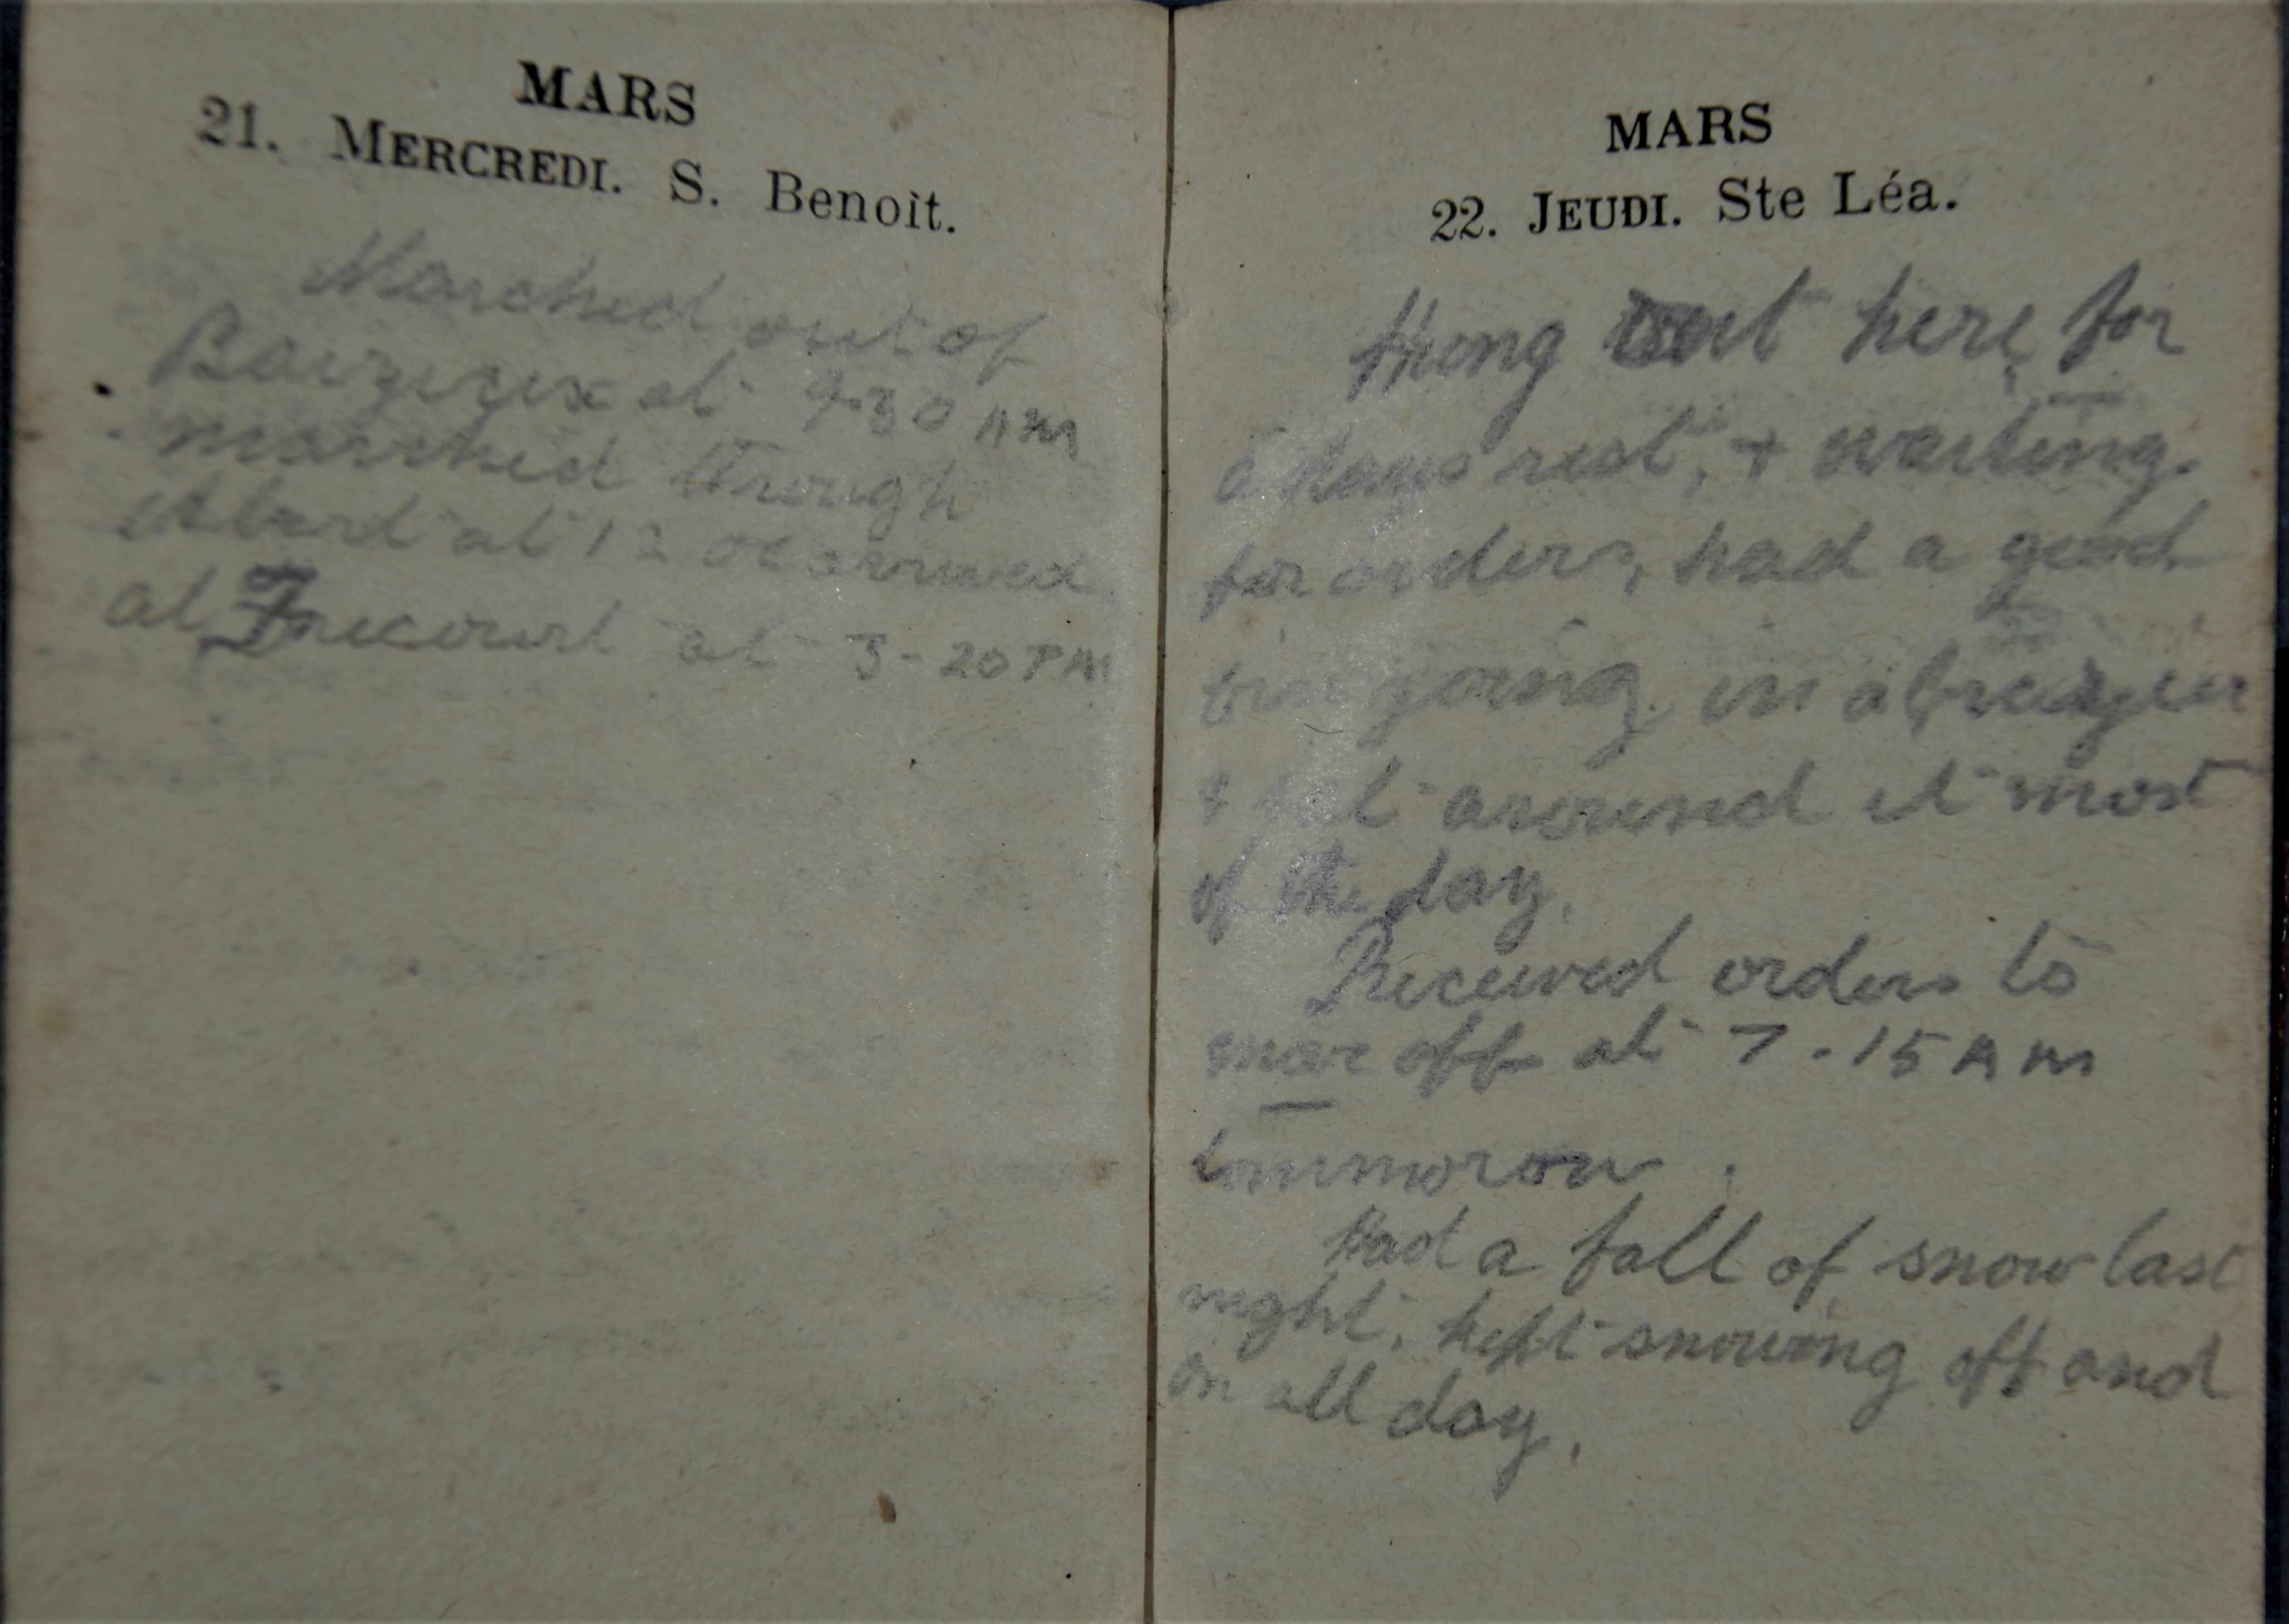 MARS
21. MERCREDI. S. Benoît.
Marched out of
Baizieux at 9-30 AM
marched through
Albert at 12 oc arrived
at Fricourt at 3-20 PM
MARS
22. JEUDI. Ste Léa.
Hung out here for
a days rest, + waiting
for orders, had a good
fire going in a brazier
& sat around it most
of the day.
Received orders to
move off at 7.15 AM
tommorow.
Had a fall of snow last
night, kept snowing off and
on all day.